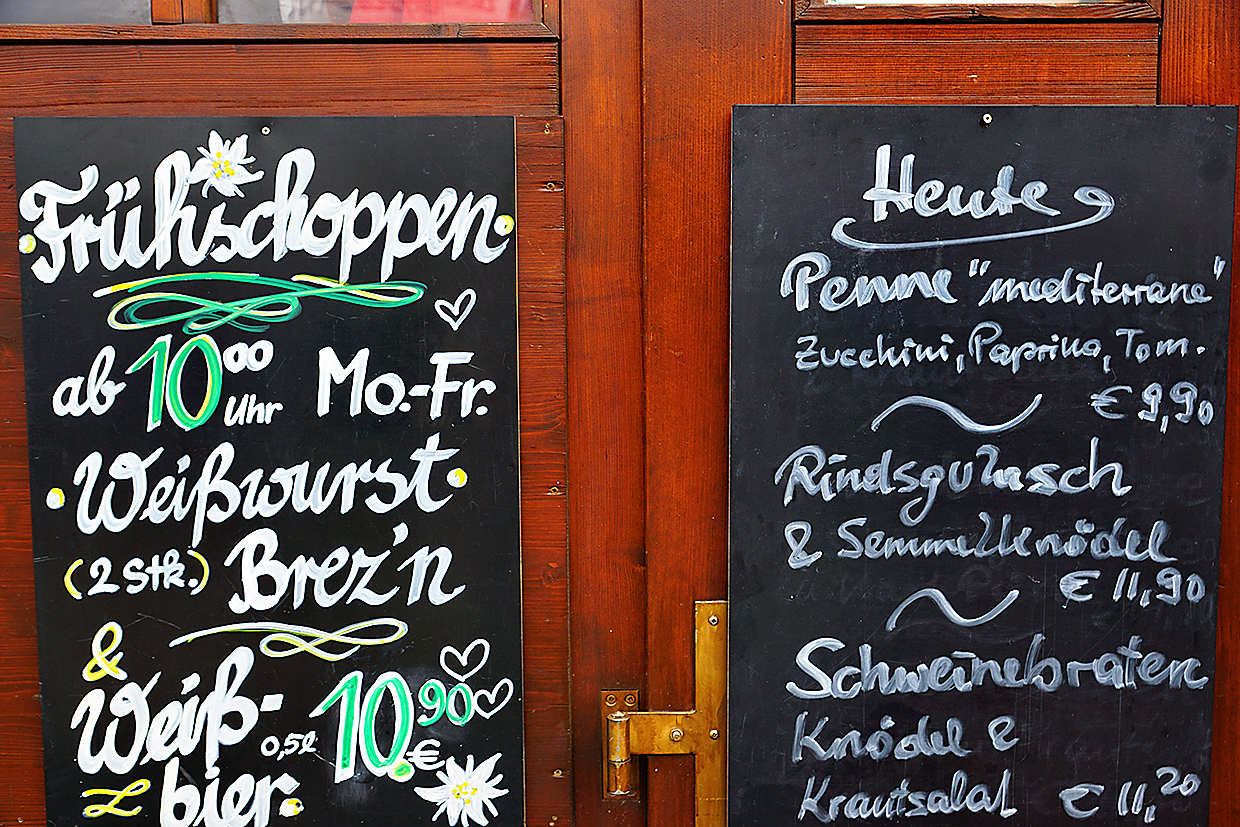 Frühschoppen
ab 10⁰⁰ Uhr Mo.-Fr.
Weißwurst
(2 Stk.) Brez'n
&
Weiß-
bier 0,5l 10.⁹⁰ €
Heute
Penne "mediterrane"
Zucchini, Paprika, Tom.
€ 9,90
Rindsgulasch
& Semmelknödel
€ 11,90
Schweinebraten
Knödel &
Krautsalat € 11,²⁰